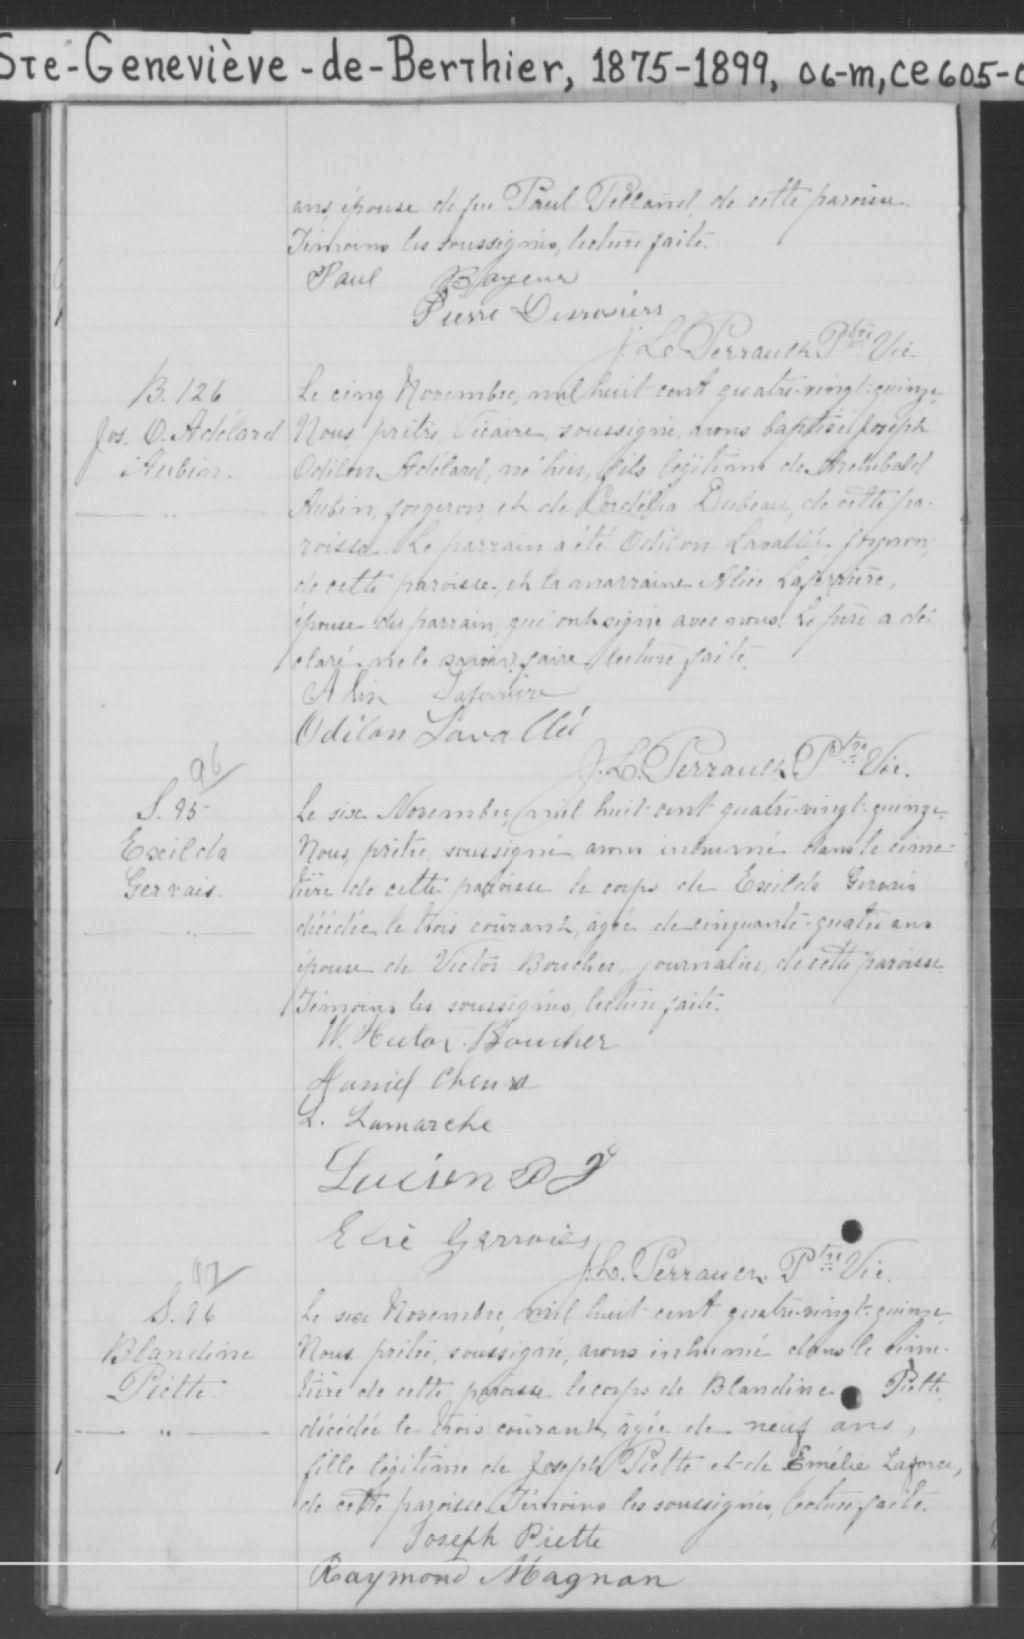 Ste-Geneviève-de-Berthier, 1875-1899, 06-m, ce605-
ans, épouse de feu Paul Pelland, de cette paroisse.
Témoins les soussignés, lecture faite.
Paul Bayeur
Pierre Desrosiers
J. L. Perrault Ptre Vic.
B. 126
Jos. O. Adélard
Aubin.
Le cinq Novembre, mil huit cent quatre-vingt-quinze
Nous prêtre, Vicaire, soussigné, avons baptisé Joseph
Odilon Adélard, né hier, fils légitime de Archibald
Aubin, forgeron, et de Cordélia Dubeau, de cette pa-
roisse. Le parrain a été Odilon Lavallée forgeron,
de cette paroisse, et la marraine Alice Laferrière,
épouse du parrain, qui ont signé avec nous. Le père a dé-
claré ne le savoir faire, lecture faite.
Laferrière
Odilon Lavallée
J. L. Perrault Ptre Vic.
96
S. 95
Exilda
Gervais.
Le six Novembre, mil huit cent quatre-vingt-quinze,
Nous, prêtre, soussigné, avons inhumé dans le cime-
tière de cette paroisse le corps de Exilda Gervais
décédée le trois courant, âgée de cinquante-quatre ans
épouse de Victor Boucher, journalier, de cette paroisse.
Témoins les soussignés, lecture faite.
Boucher
L. Lamarche
Lucien
J. L. Perrault Ptre Vic.
97
S. 96
Blandine
Piette
Le six Novembre, mil huit cent quatre-vingt-quinze
Nous prêtre, soussigné, avons inhumé dans le cime-
tière de cette paroisse le corps de Blandine Piette
décédée le trois courant, âgée de neuf ans,
fille légitime de Joseph Piette et de Emélie Laforce,
de cette paroisse. Témoins les soussignés, lecture faite.
Joseph Piette
Raymond Magnan